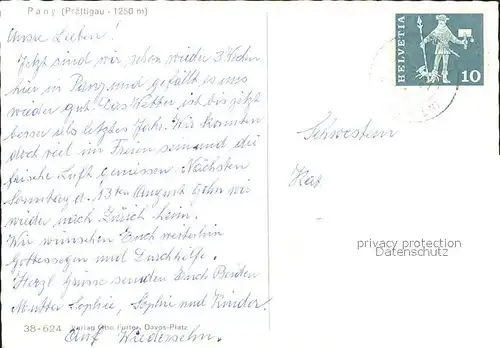 Pany (Prättigau - 1250 m)
Unsre Lieben!
Jetzt sind wir schon wieder 3 Wochen
hier in Pany und gefällt es uns
wieder gut. Das Wetter ist bis jetzt
besser als letztes Jahr. Wir konnten
doch viel im Freien sein und die
frische Luft geniessen. Nächsten
Sonntag d. 13ten August gehn wir
wieder nach Zürich heim.
Wir wünschen Euch weiterhin
Gottessegen und Durchhilfe.
Herzl. Grüsse senden Euch Beiden
Mutter Sophie, Sophie und Kinder.
Auf Wiedersehn.
38-624 Verlag Otto Furter, Davos-Platz
HELVETIA
10
Schwestern
privacy protection
Datenschutz